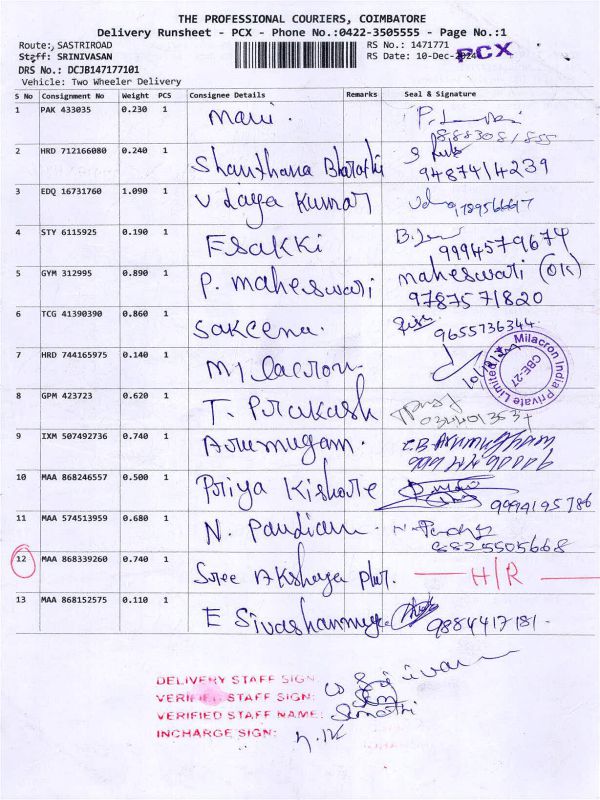 THE PROFESSIONAL COURIERS, COIMBATORE
Delivery Runsheet - PCX - Phone No.:0422-3505555 - Page No.:1
Route:, SASTRIROAD RS No.: 1471771
Staff: SRINIVASAN RS Date: 10-Dec-2024 PCX
DRS No.: DCJB147177101
Vehicle: Two Wheeler Delivery
S No Consignment No Weight PCS Consignee Details Remarks Seal & Signature
1 PAK 433035 0.230 1 Mari.
2 HRD 712166080 0.240 1 Shanthana Bharathi
9487414239
3 EDQ 16731760 1.090 1 Udaya Kumar
4 STY 6115925 0.190 1 Esakki 9994579674
5 GYM 312995 0.890 1 P. Maheswari maheswari (OK)
9787571820
6 TCG 41390390 0.860 1 Sakeena. 9655736344
7 HRD 744165975 0.140 1 Milacron Milacron India Private Limited CBE-27
8 GPM 423723 0.620 1 T. Prakash
9 IXM 507492736 0.740 1 Arumugam.
10 MAA 868246557 0.500 1 Priya Kishore 9994195786
11 MAA 574513959 0.680 1 N. Pandian
8825505668
12 MAA 868339260 0.740 1 Sree Akshaya H/R
13 MAA 868152575 0.110 1 E Sivashanmuga 9884417181.
DELIVERY STAFF SIGN
VERIFIED STAFF SIGN:
VERIFIED STAFF NAME:
INCHARGE SIGN: